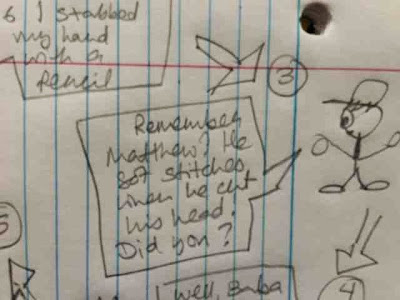 6 I stabbed
my hand
with a
pencil
3
Remember
Matthew? He
got stitches
when he cut
his head.
Did you?
5
4
Well, Baba